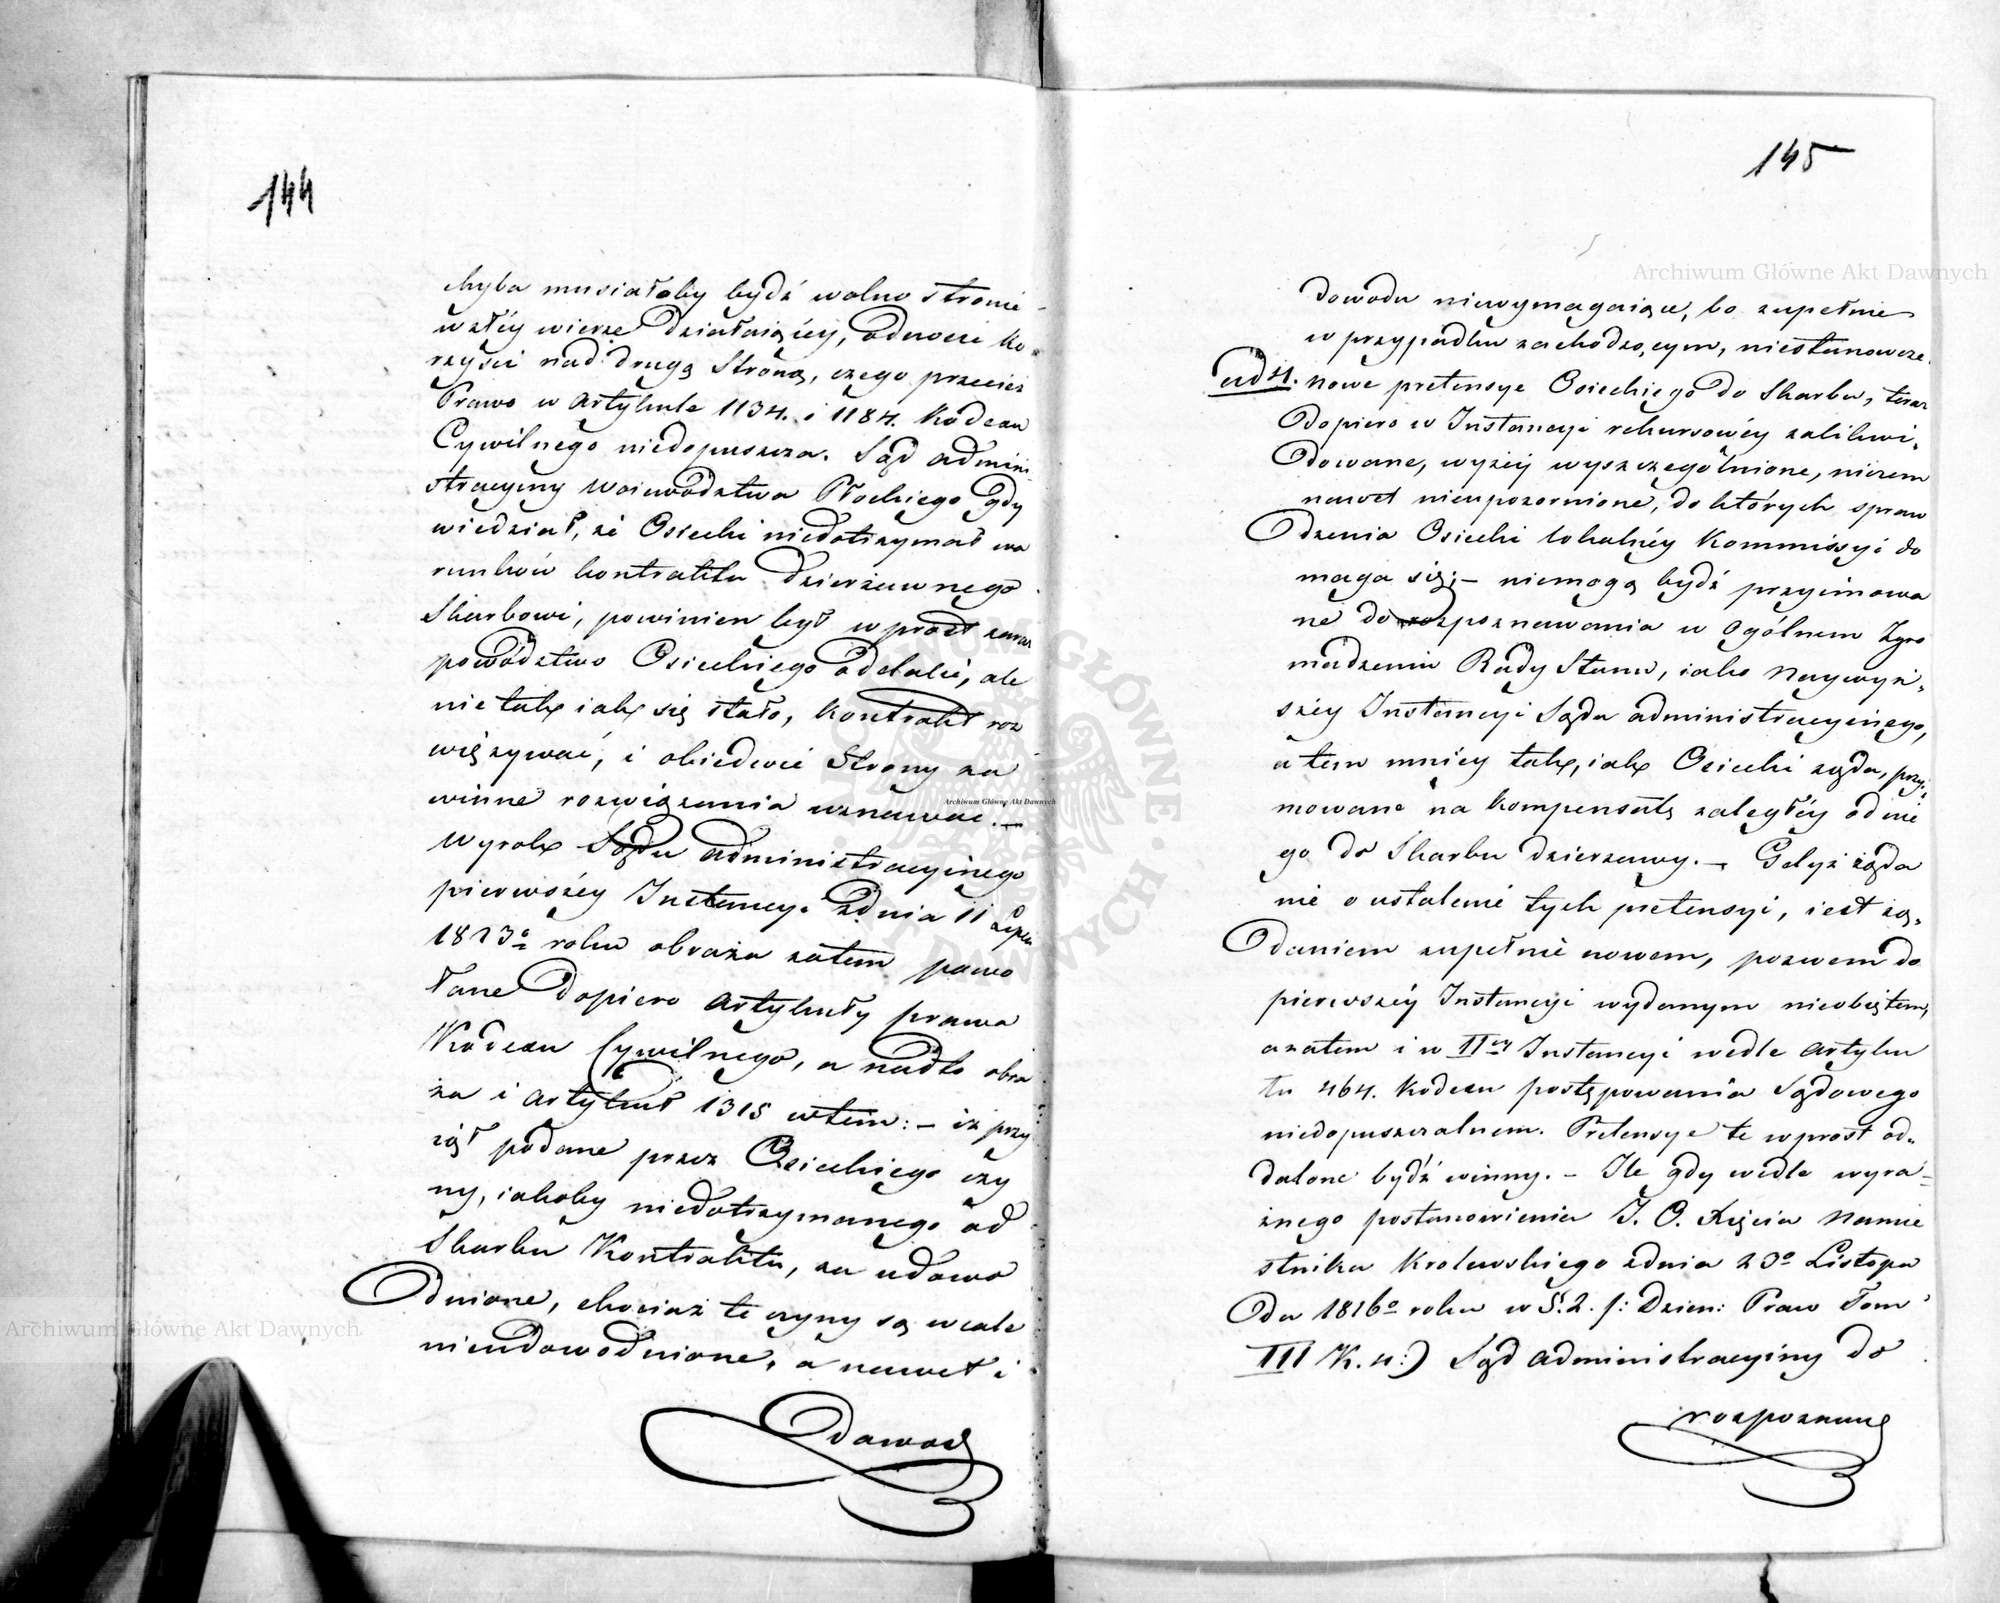 144
chyba musiałoby bydź wolno stronie
w złéy wierze działaiącéy, odnosić ko-
rzyści nad drugą Stroną, czego przecież
Prawo w Artykule 1134. i 1184. Kodexu
Cywilnego niedopuszcza. Sąd admini-
stracyiny Woiewództwa Płockiego gdy
wiedział, że Osiecki niedotrzymał wa
runków kontraktu dzierżawnego
Skarbowi, powinien był wprost zaraz
powództwo Osieckiego oddalić, ale
nie tak iak się stało, kontrakt roz
wiązywać, i obiedwie Strony za
winne rozwiązania uznawać. —
Wyrok Sądu administracyinego
pierwszéy Instancyi z dnia 11 Lipca
1823º roku obraża zatem powo
łane dopiero artykuły prawa
Kodexu Cywilnego, a nadto obra
ża i artykuł 1315 wtem: — iż przy
iął podane przez Osieckiego czy
ny, iakoby niedotrzymanego od
Skarbu Kontraktu, za udowo
dnione, chociaż te czyny są wcale
nieudowodnione, a nawet i
dowod
145
dowodu niewymagaiące, bo zupełnie
w przypadku zachodzącym, niestanowcze.
ad 4. Nowe pretensye Osieckiego do Skarbu, teraz
dopiero w Instancyi rekursowéy zalikwi-
dowane, wyżéy wyszczególnione, niczem
nawet nieupozornione, do których spraw
dzenia Osiecki lokalnéy Kommissyi do
maga się; — niemogą bydź przyimowa
ne do rozpoznawania w Ogólnem Zgro
madzeniu Rady Stanu, iako Naywyż-
széy Instancyi Sądu administracyinego,
a tem mniéy tak, iak Osiecki żąda, przyi-
mowane na kompensatę zaległéy od nie
go do Skarbu dzierżawy. — Gdyż żąda
nie o ustalenie tych pretensyi, iest żą-
daniem zupełnie nowem, pozwem do
pierwszéy Instancyi wydanym nieobiętem,
a zatem i w IIéy Instancyi wedle Artyku
łu 464. Kodexu postępowania Sądowego
niedopuszczalnem. Pretensye te wprost od-
dalone bydź winny. — Ile gdy wedle wyra-
źnego postanowienia J. O. Xięcia Namie
stnika Krolewskiego z dnia 23º Listopa
da 1816º roku w §. 2. /: Dzien: Praw Tom
III K. 4 :) Sąd Administracyiny do
rozpoznaną